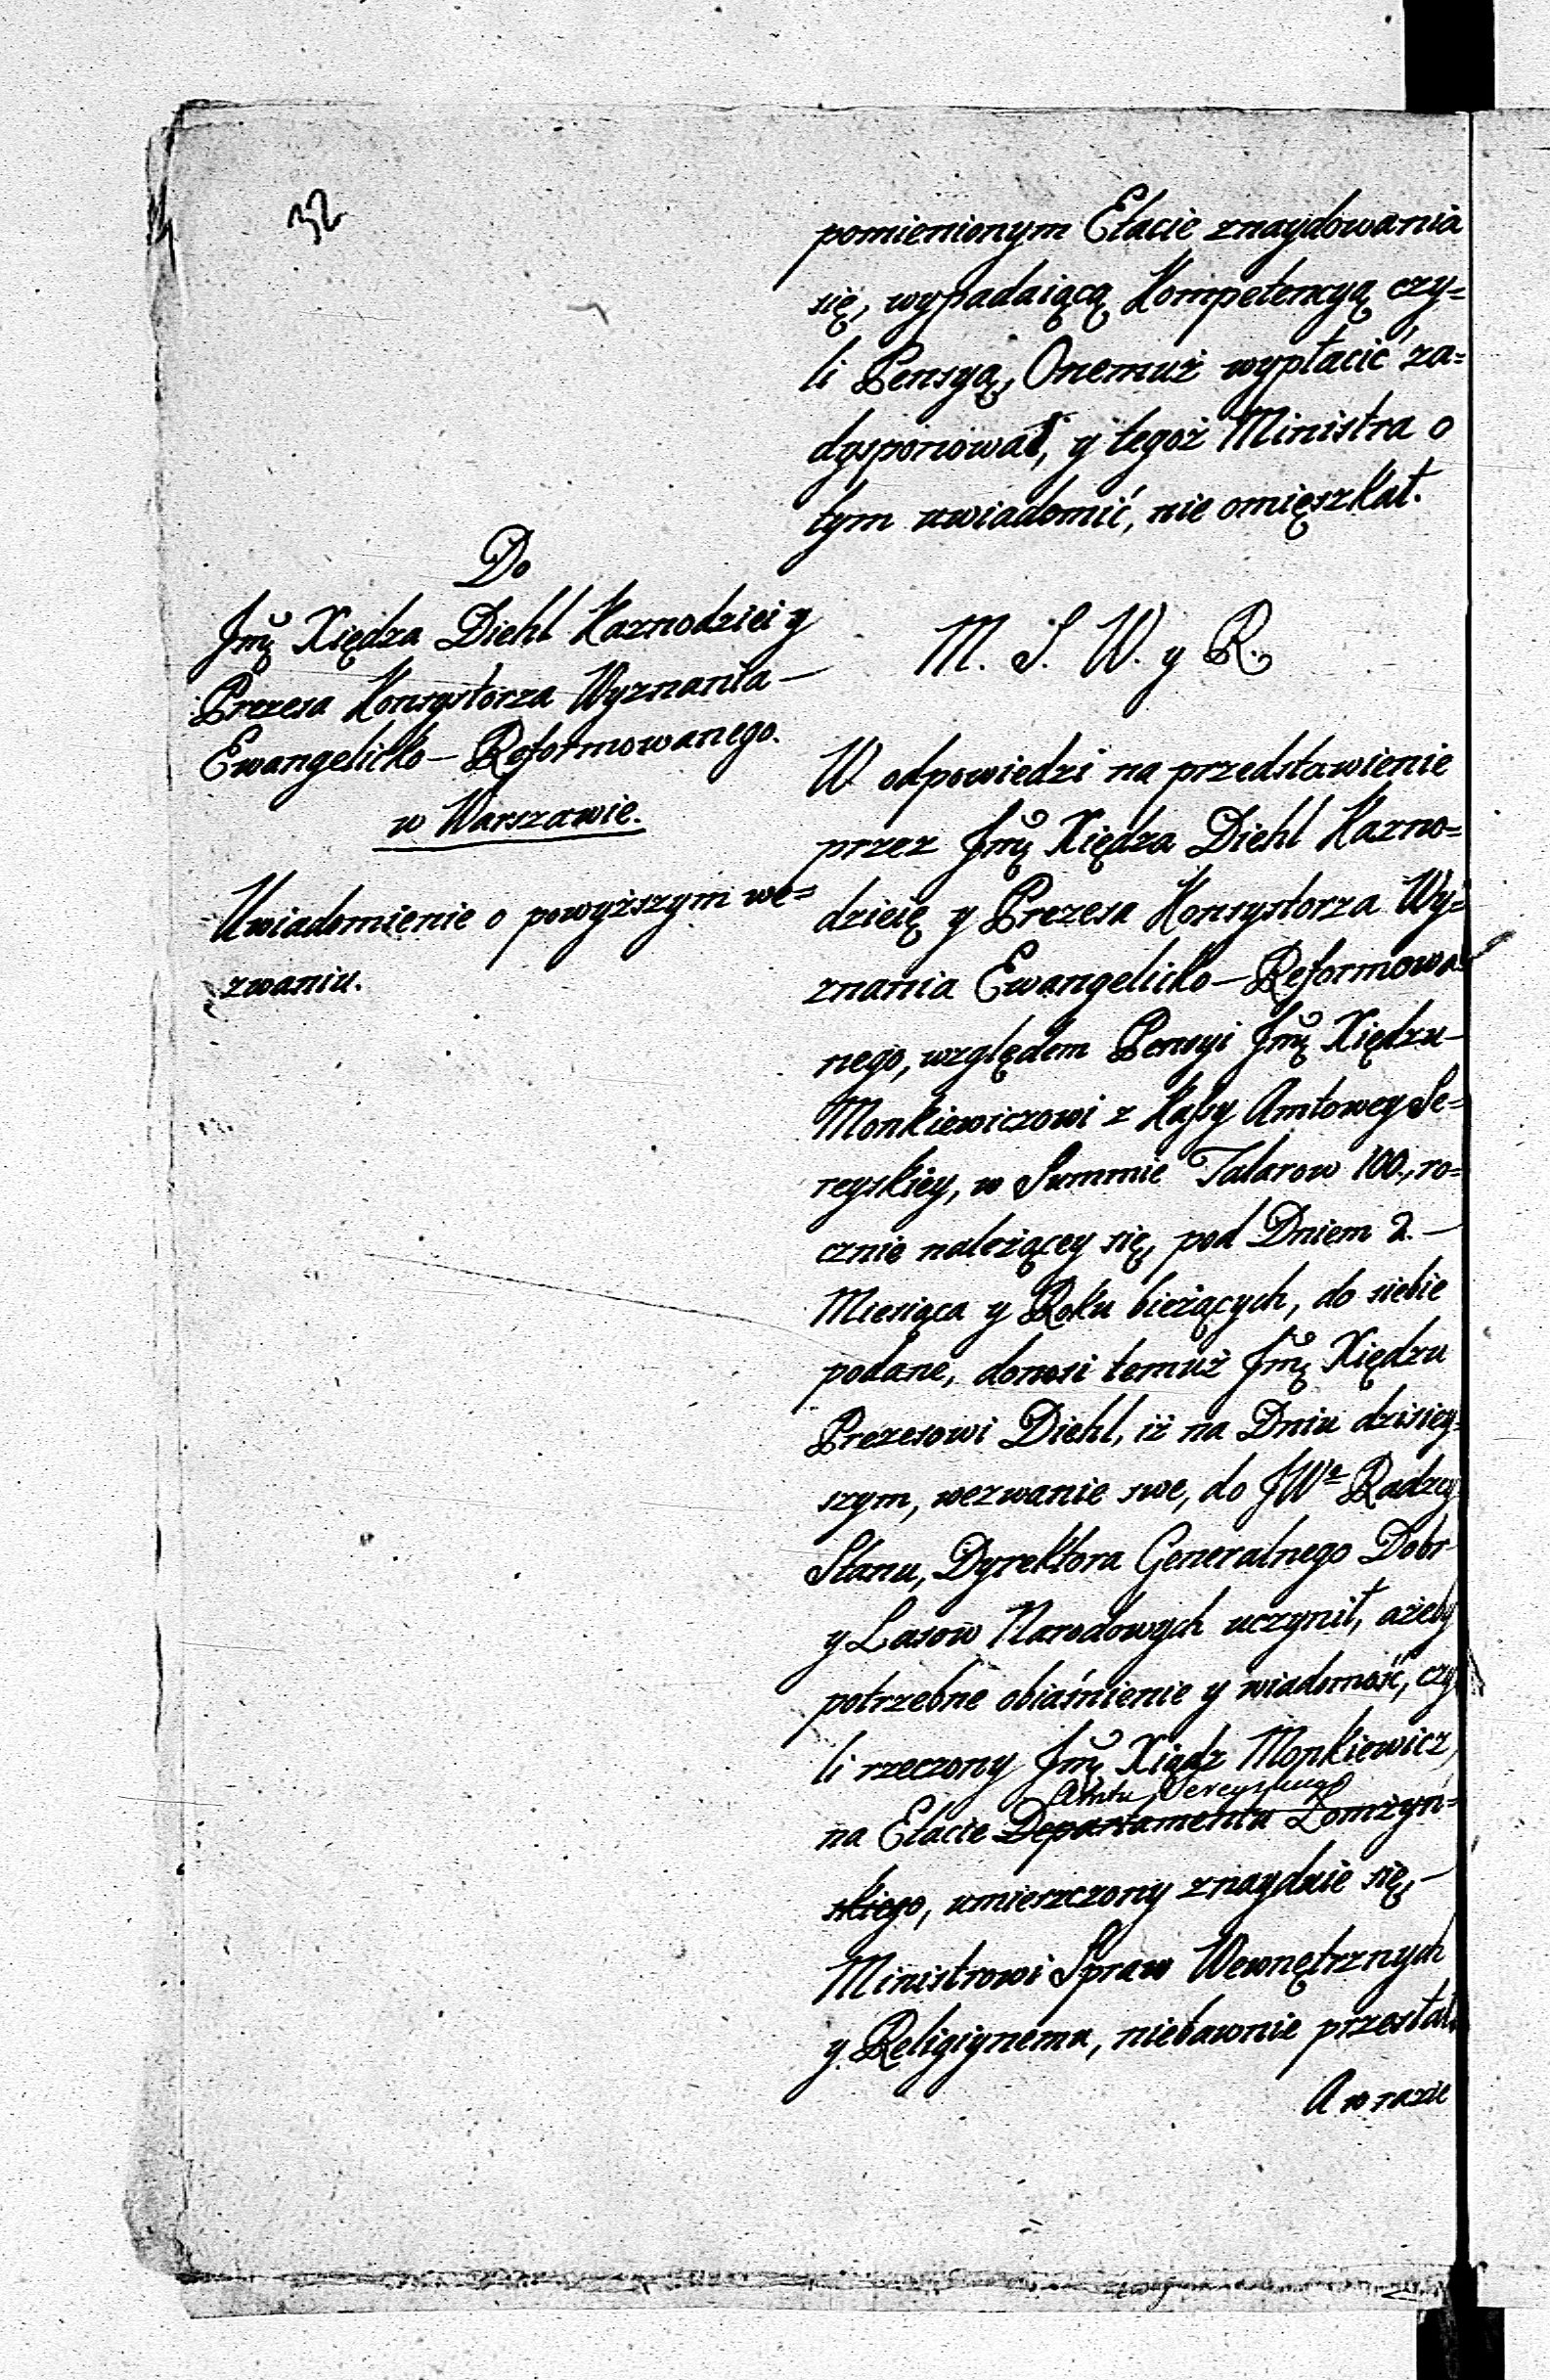 32
pomienionym Etacie znaydowania
się, wypadaiącą Kompetencyą czy=
li Pensyą, Onemuż wypłacić za=
dysponował, y tegoż Ministra o
tym uwiadomić, nie omięszkał.
Do
Jmę Xiędza Diehl Kaznodziei y
Prezesa Konsystorza Wyznania —
Ewangelicko — Reformowanego.
w Warszawie.
Uwiadomienie o powyższym we=
zwaniu.
M. S. W. y R.
W odpowiedzi na przedstawienie
przez Jmę Xiędza Diehl Kazno=
dzieię y Prezesa Konsystorza Wy=
znania Ewangelicko — Reformowa=
nego, względem Pensyi Jmę Xiędzu —
Monkiewiczowi z Kassy Amtowey Se=
reyskiey, w Summie Talarow 100, ro=
cznie należącey się, pod Dniem 2. —
Miesiąca y Roku bieżących, do siebie
podane, donosi temuż Jmę Xiędzu
Prezesowi Diehl, iż na Dniu dzisiey=
szym, wezwanie swe, do JWo Radzcy
Stanu, Dyrektora Generalnego Dobr
y Lasow Narodowych uczynił, ażeby
potrzebne obiaśnienie y wiadomość, czy
li rzeczony Jmę Xiądz Monkiewicz,
Amtu Sereyskiego
na Etacie Departamentu Łomżyń=
skiego, umieszczony znayduie się, —
Ministrowi Spraw Wewnętrznych
y Religiynemu, niebawnie przesłał.
A w razie